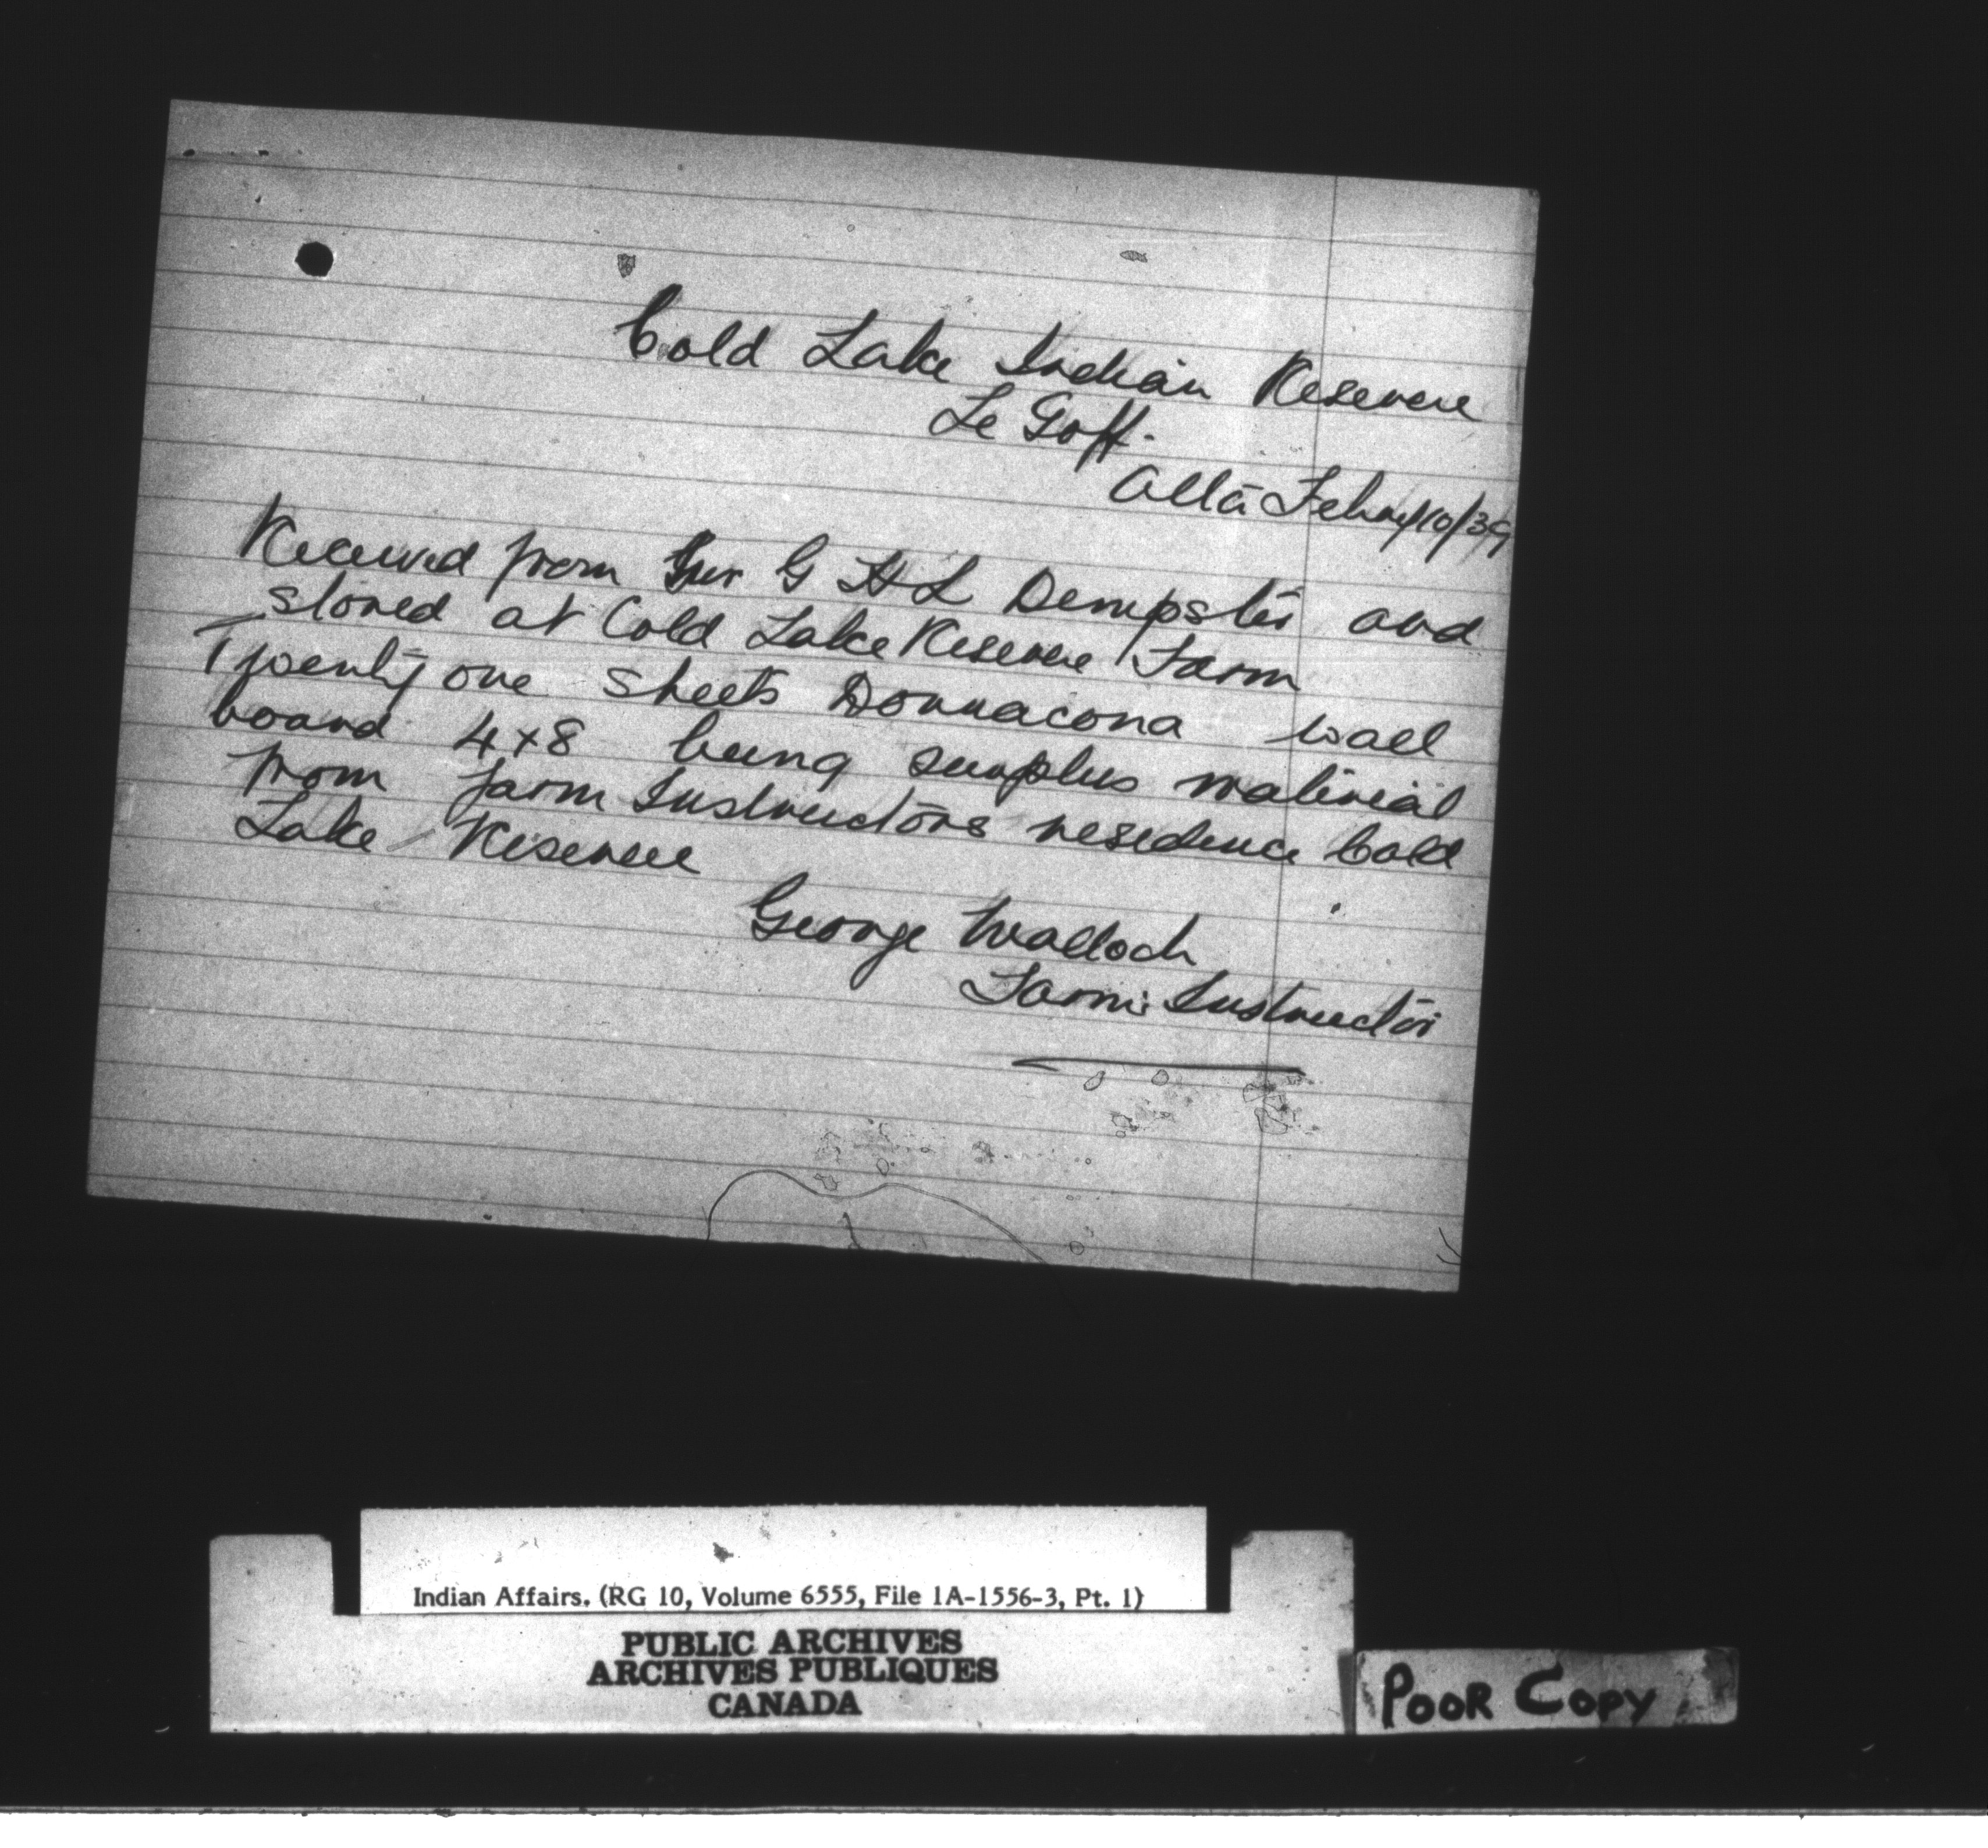 Cold Lake Indian Reserve
Le Goff.
Alta Febry 10/39
Received from G H L Dempster and
stored at Cold Lake Reserve Farm
Twenty one sheets Donnacona wall
board 4x8 being surplus material
from farm Instructors residence Cold
Lake Reserve
George
Farm Instructor
Indian Affairs. (RG 10, Volume 6555, File 1A-1556-3, Pt. 1)
PUBLIC ARCHIVES
ARCHIVES PUBLIQUES
CANADA
POOR COPY